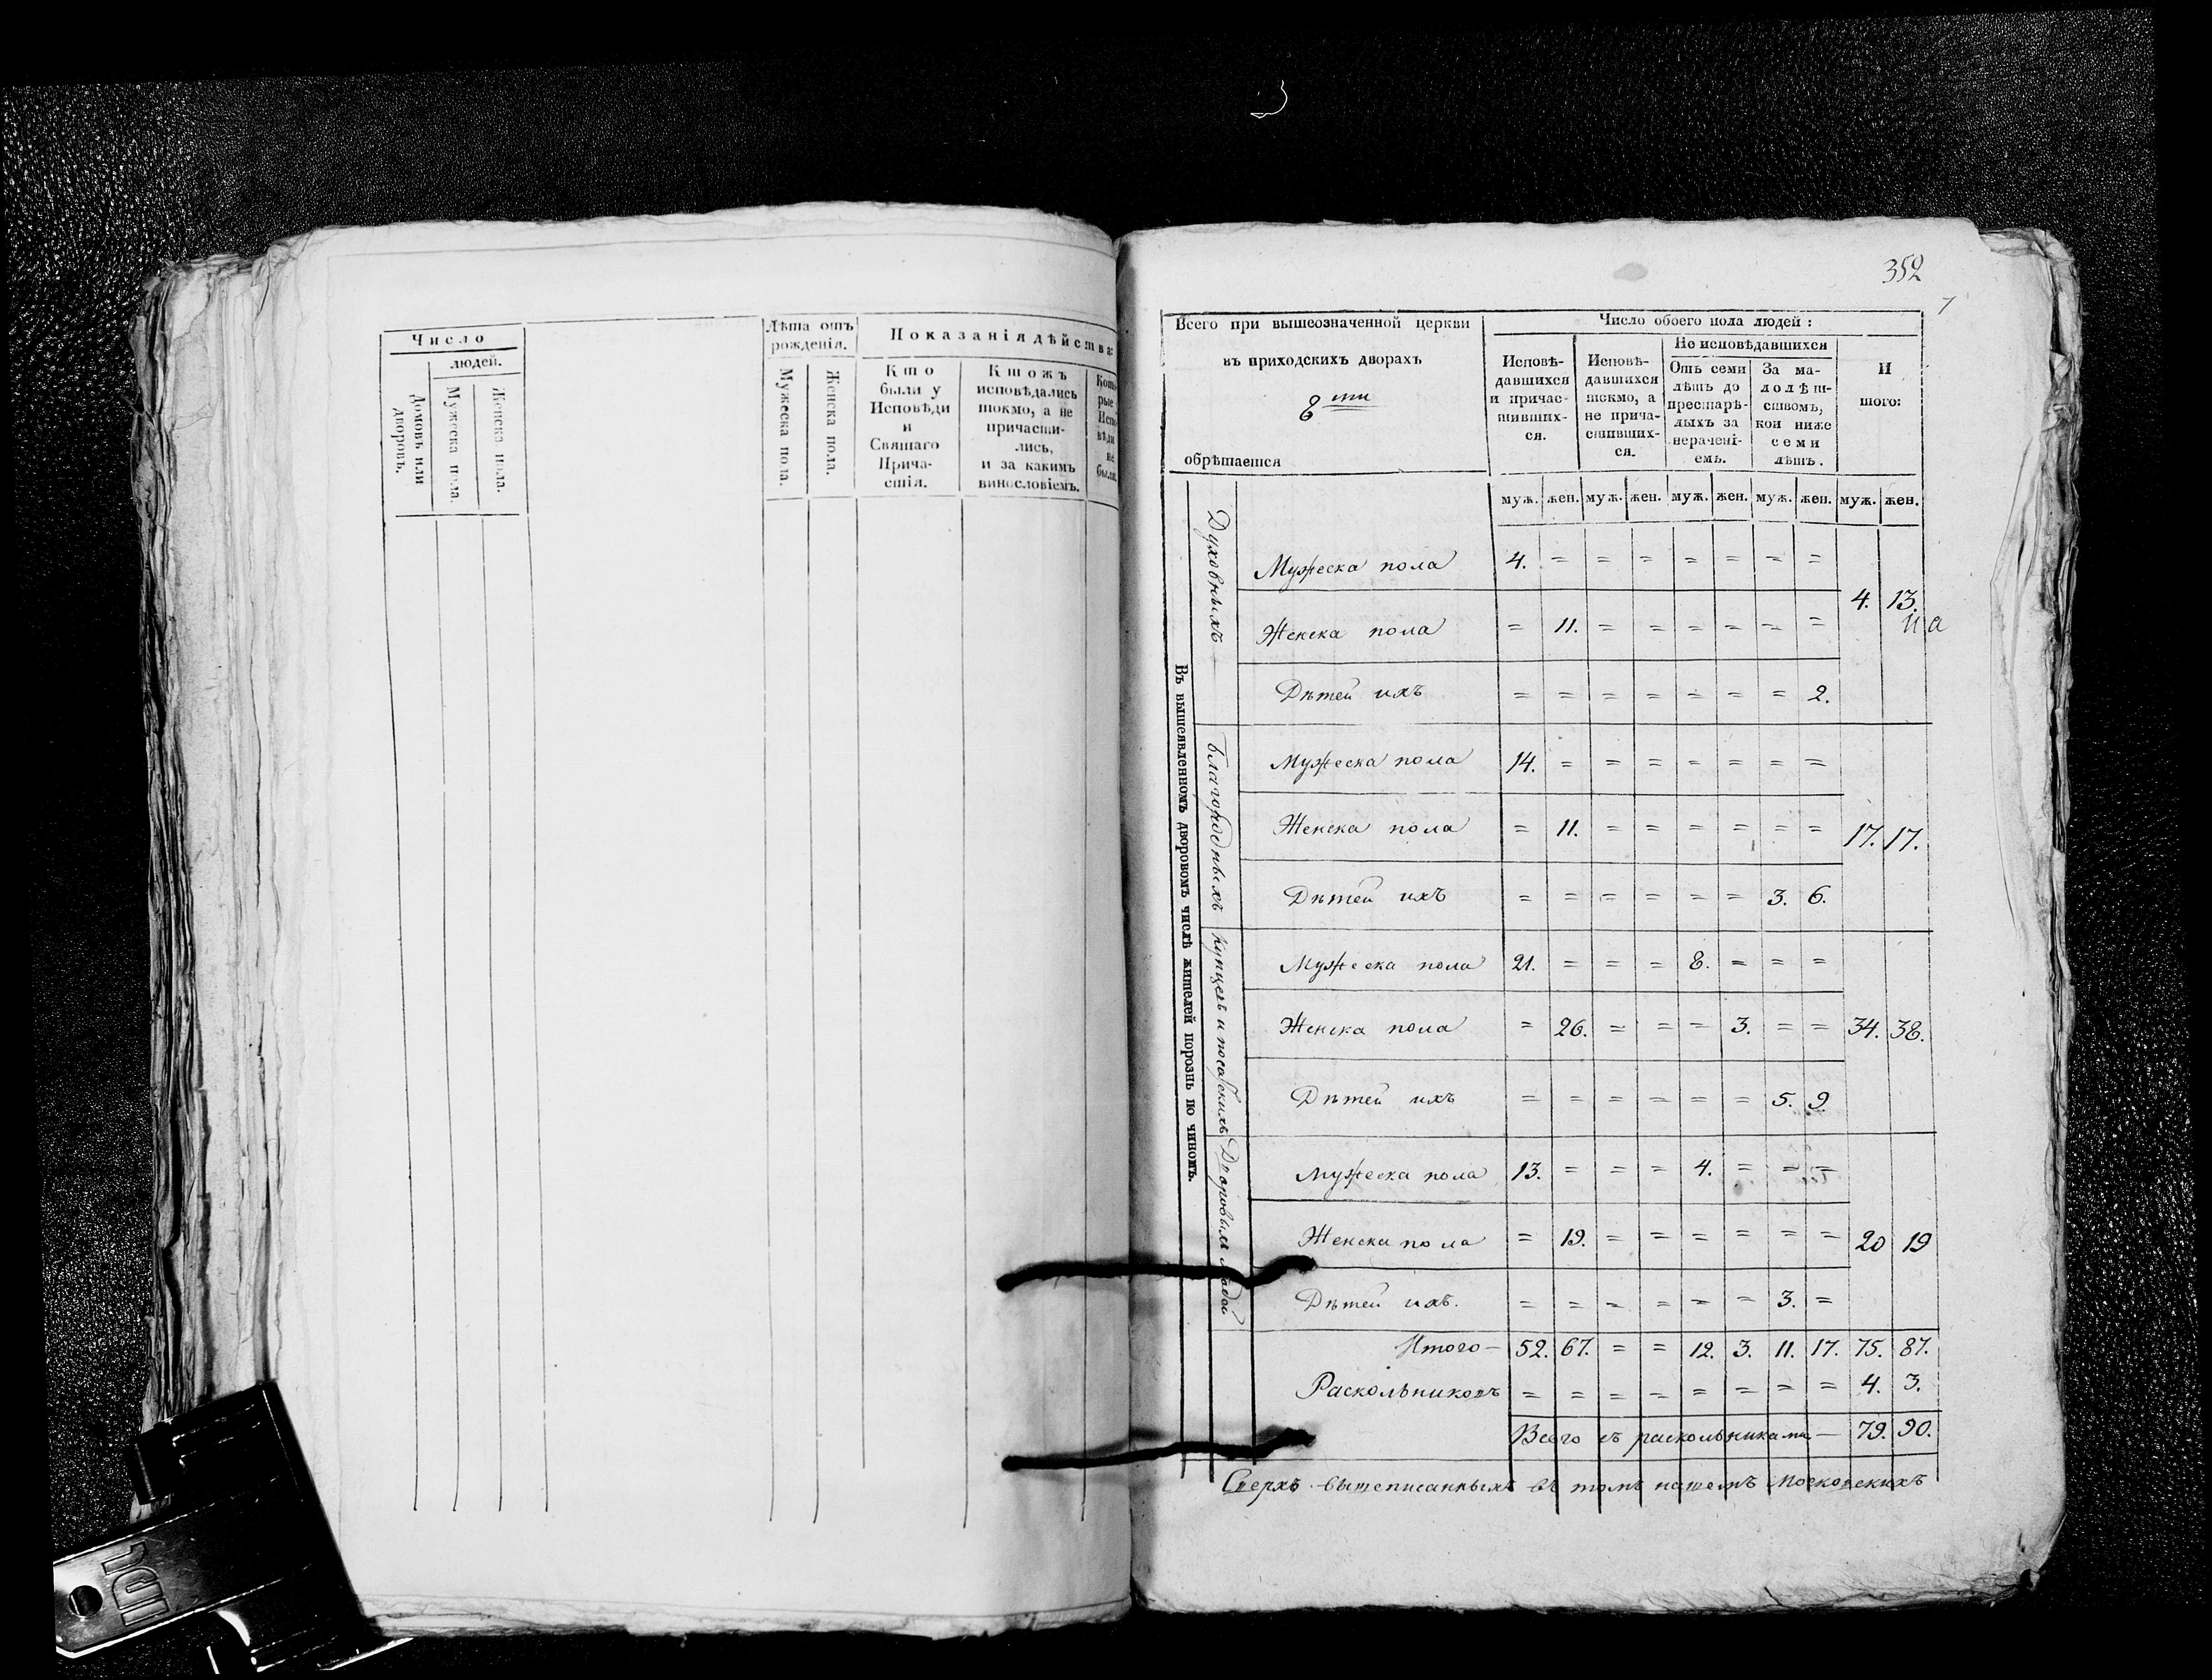 Число
людей.
Домовъ или дворовъ.
Мужеска пола.
Женска пола.
Лѣта отъ рожденія.
Мужеска пола.
Женска пола.
Показанія дѣйства:
Кто
были у
Исповѣди
и
Святаго
Прича-
стія.
Ктожъ
исповѣдались
токмо, а не
причасти-
лись,
и за какимъ
винословіемъ.
Кото-
рые
Испо-
вѣди
не
были.
352
Всего при вышеозначенной церкви
въ приходскихъ дворахъ
8ми
обрѣтается
Число обоего пола людей:
Исповѣ-
давшихся
и причас-
тивших-
ся.
Исповѣ-
давшихся
токмо, а
не прича-
стивших-
ся.
Не исповѣдавшихся
Отъ семи
лѣтъ до
престарѣ-
лыхъ за
нерачені-
емъ.
За ма-
лолѣт-
ствомъ,
кои ниже
семи
лѣтъ.
И
того:
муж. жен. муж. жен. муж. жен. муж. жен. муж. жен.
Въ вышеявленномъ дворовомъ числѣ жителей порознь по чиномъ.
Духовныхъ
Мужеска пола 4. = = = = = = =
Женска пола = 11. = = = = = =
4. 13.
11 а
Дѣтей ихъ = = = = = = = 2.
Благородныхъ
Мужеска пола 14. = = = = = = =
Женска пола = 11. = = = = = = 17. 17.
Дѣтей ихъ = = = = = = 3. 6.
Купцевъ и посадскихъ
Мужеска пола 21. = = = 8. = = =
Женска пола = 26. = = = 3. = = 34. 38.
Дѣтей ихъ = = = = = = 5. 9
Дворовыхъ людей
Мужеска пола 13. = = = 4. = = =
Женска пола = 19. = = = = = = 20 19
Дѣтей ихъ. = = = = = = 3. =
Итого — 52. 67. = = 12. 3. 11. 17. 75. 87.
Раскольниковъ = = = = = = = = 4. 3.
Всего съ раскольниками — 79. 90.
Сверхъ вышеписанныхъ въ томъ нашемъ Московскихъ